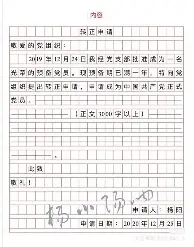 内容
转正申请
敬爱的党组织：
2019年12月24日我经党支部批准成为一名
光荣的预备党员。现预备期已满一年，特向党
组织提出转正申请，申请成为中国共产党正式
党员。
（正文1000字以上）
此致
敬礼！
申请人：杨阳
申请日期：2020年12月25日